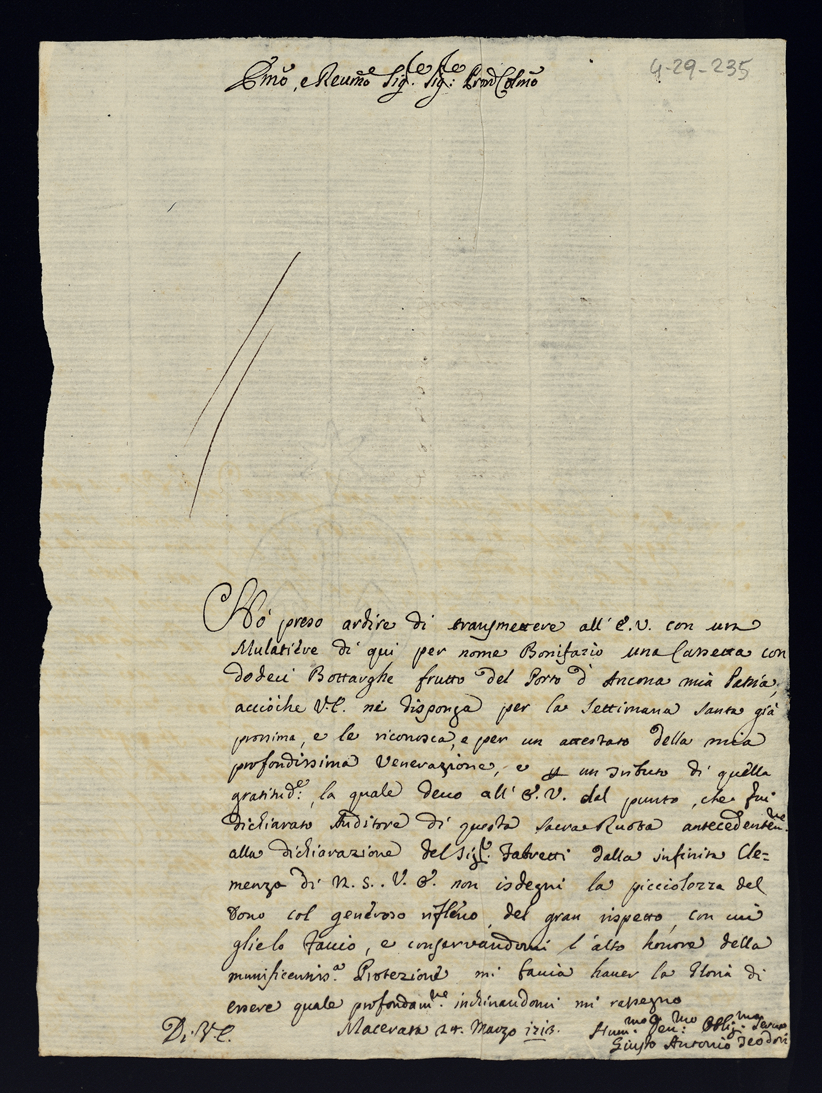 4-29-235
Emo, e Reumo Sig.re Sig.re Prone Colmo
Hò preso ardire di transmettere all' E.V. con un
Mulatiere di qui per nome Bonifazio una Cassetta con
dodeci Bottarghe frutto del Porto d'Ancona mia Patria,
acciòche V.E. ne disponga per la Settimana Santa già
prossima, e le riconosca, e per un attestato della mia
profondissima Venerazione, e p un tributo di quella
gratitud.e, la quale devo all' E.V. dal punto, che fui
dichiarato Auditore di questa Sacra Ruota antecedentem.te
alla dichiarazione del Sig.r Fabretti dalla infinita Cle=
menza di N.S. V.E. non isdegni la picciolezza del
Dono col generoso riflesso del gran rispetto, con cui
glielo faccio, e conservandomi l'alto honore della
munificentiss.a Protezione mi faccia haver la Gloria di
essere quale profondam.te inchinandomi mi rassegno
Di V.E. Macerata 24. Marzo 1713. Hum.mo Dev.mo Oblig.mo Servo
Giusto Antonio Teodori